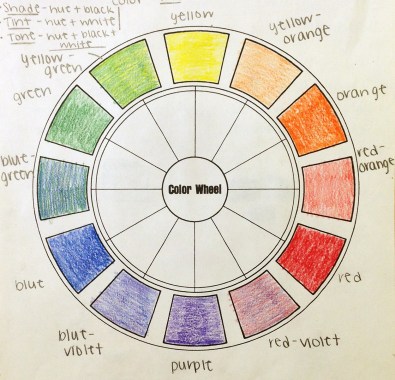 - Shade - hue + black
- Tint - hue + white
- Tone - hue + black +
white
color
yellow
yellow-
orange
orange
red-
orange
red
red-violet
purple
blue-
violet
blue
blue-
green
green
yellow-
green
Color Wheel